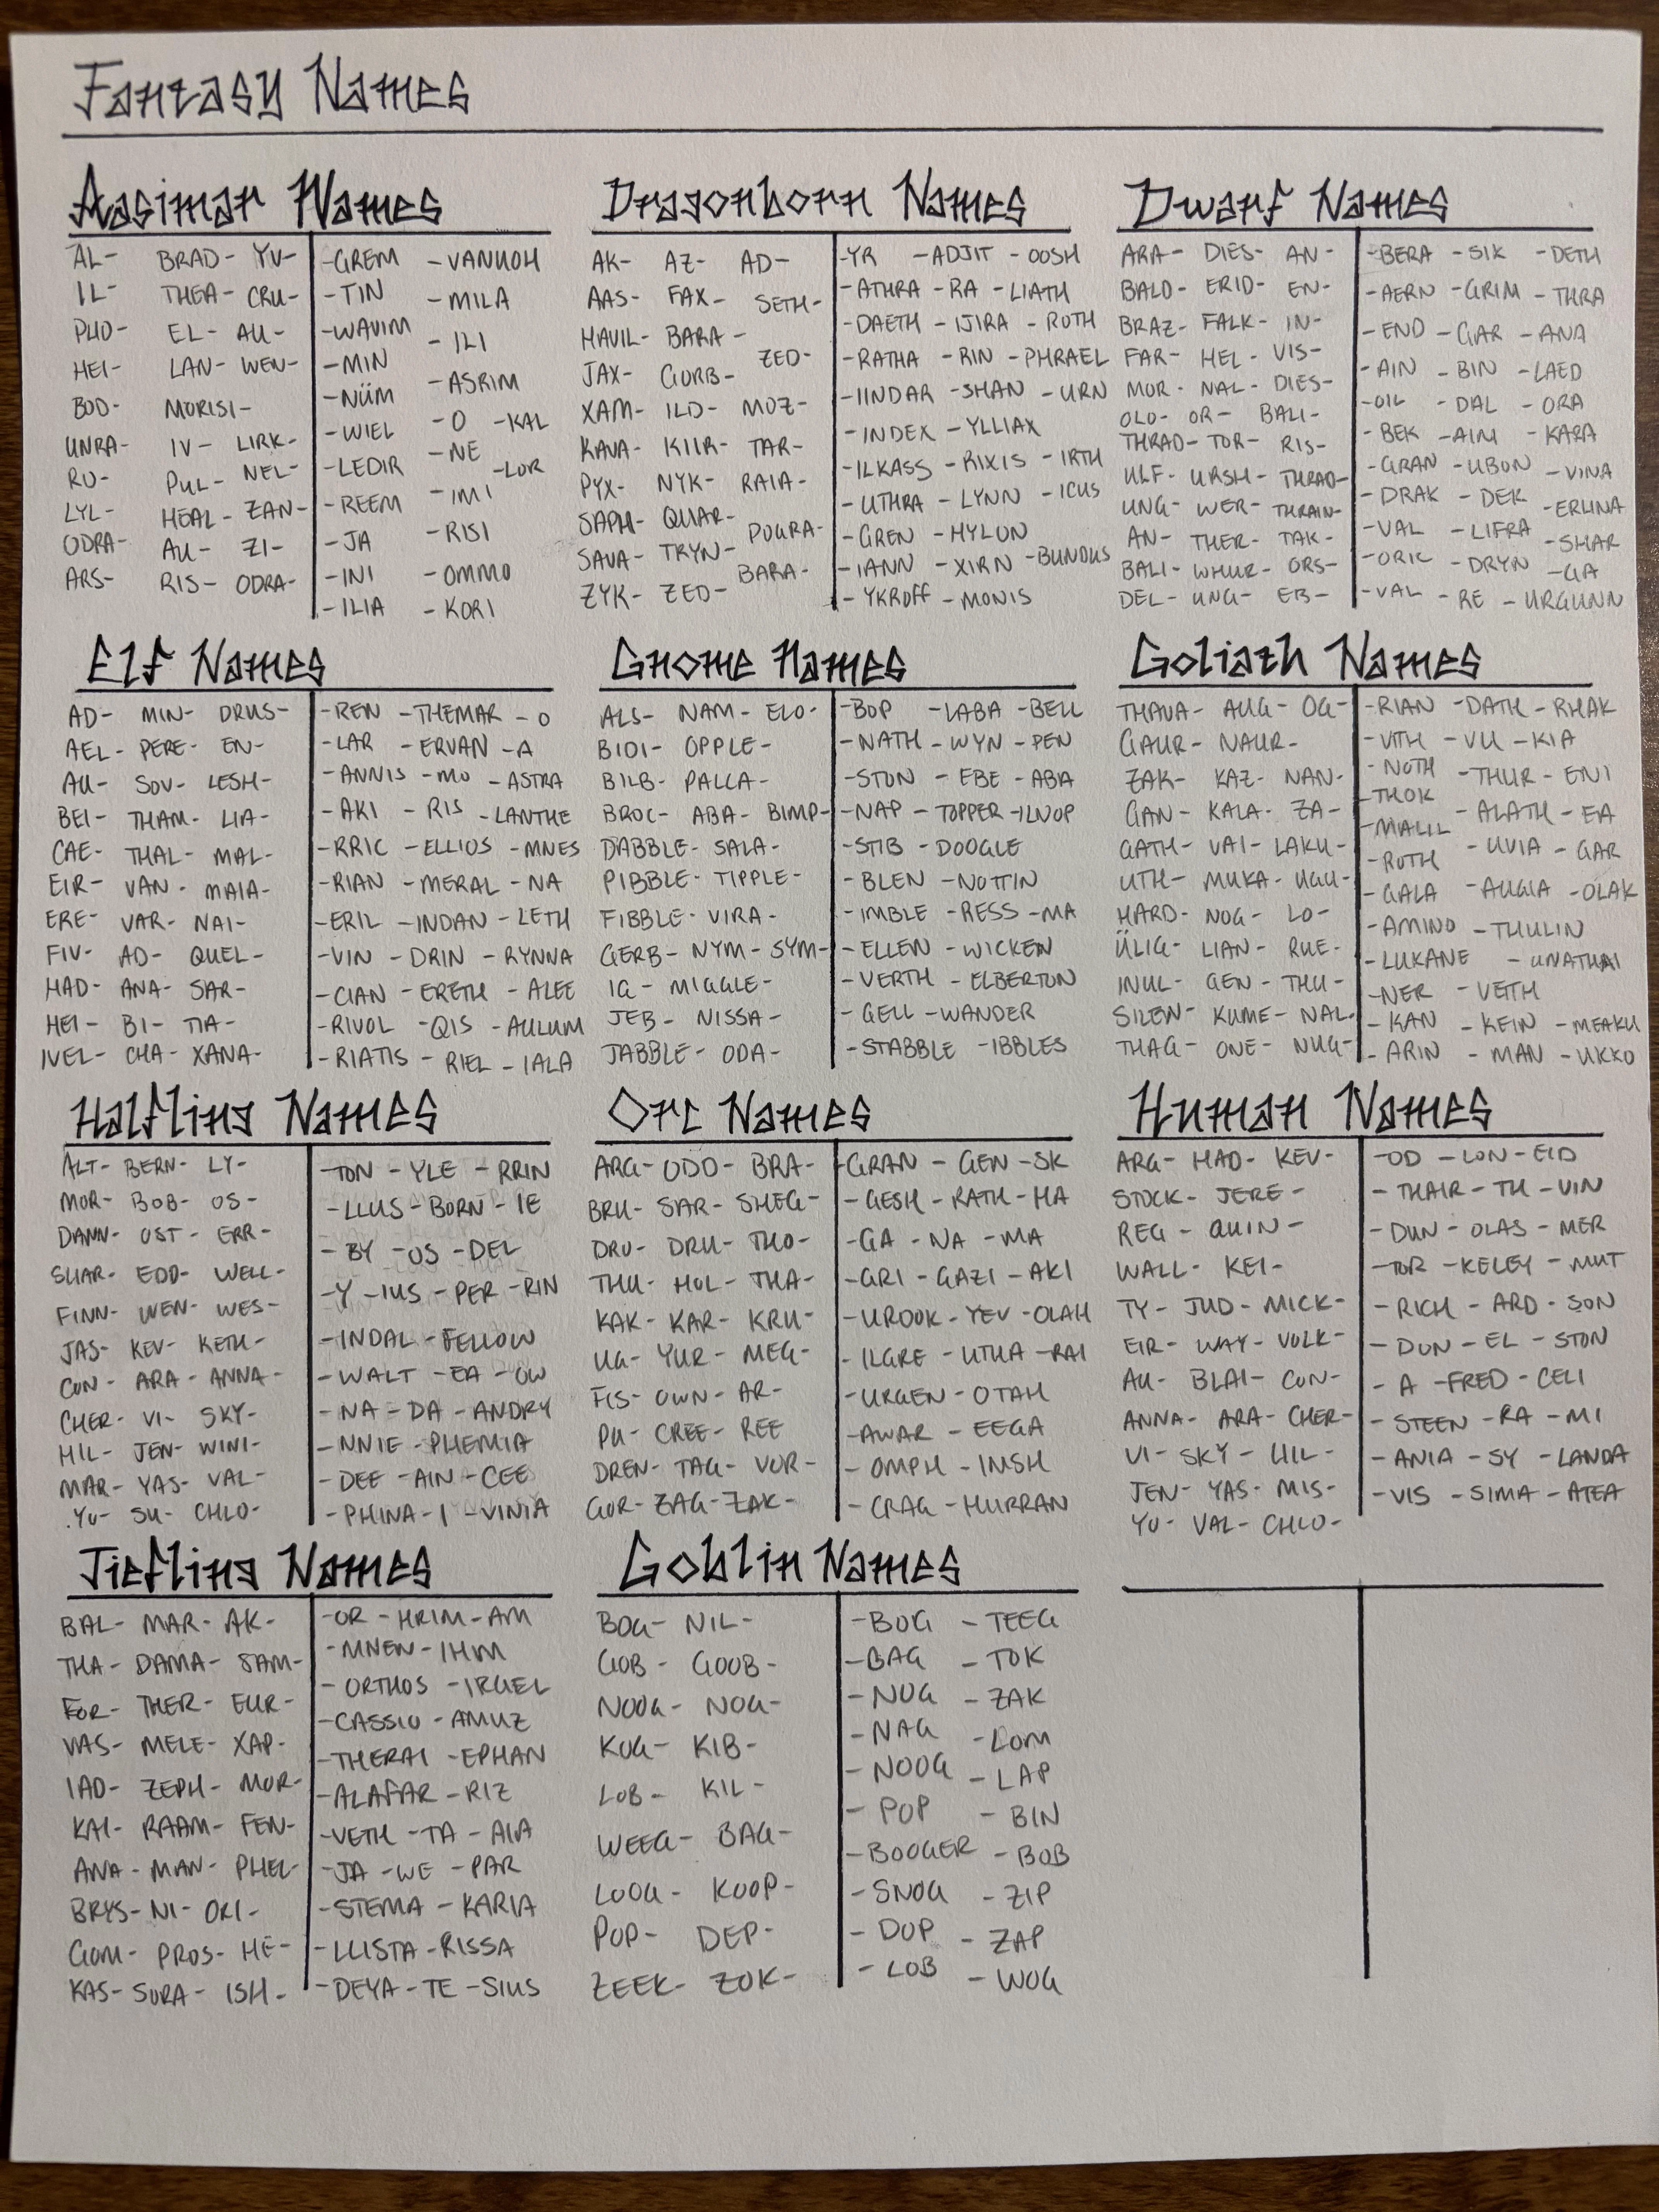 Fantasy Names
Aasimar Names
AL- BRAD- YV- -GREM -VANUOH
IL- THEA- CRU- -TIN -MILA
PUO- EL- AU- -WAVIM -ILI
HEI- LAN- WEN- -MIN -ASRIM
BOD- MORISI- -NÜM -O -KAL
UNRA- IV- LIRK- -WIEL -NE
RU- PUL- NEL- -LEDIR -LOR
LYL- HEAL- ZAN- -REEM -IMI
ODRA- AU- ZI- -JA -RISI
ARS- RIS- ODRA- -INI -OMMO
-ILIA -KORI
Dragonborn Names
AK- AZ- AD- -YR -ADJIT -OOSH
AAS- FAX- SETH- -ATHRA -RA -LIATH
HAVIL- BARA- -DAETH -IJIRA -ROTH
JAX- GORB- ZED- -RATHA -RIN -PHRAEL
XAM- ILD- MOZ- -IINDAR -SHAN -URN
KAVA- KIIR- TAR- -INDEX -YLLIAX
PYX- NYK- RAIA- -ILKASS -RIXIS -IRTH
SAPH- QUAR- POGRA- -UTHRA -LYNN -ICUS
SAVA- TRYN- BARA- -GREN -HYLON
ZYK- ZED- -IANN -XIRN -BUNDUS
-YKROFF -MONIS
Dwarf Names
ARA- DIES- AN- -BERA -SIK -DETH
BALD- ERID- EN- -AERN -GRIM -THRA
BRAZ- FALK- IN- -END -GAR -ANA
FAR- HEL- VIS- -AIN -BIN -LAED
MOR- NAL- DIES- -OIL -DAL -ORA
OLO- OR- BALI- -BEK -AIM -KARA
THRAD- TOR- RIS- -GRAN -UBON -VINA
ULF- URSH- THRAD- -DRAK -DEK -ERLINA
UNG- WER- THRAIN- -VAL -LIFRA -SHAR
AN- THER- TAK- -ORIC -DRYN -GA
BALI- WHUR- ORS- -VAL -RE -URGUNN
DEL- UNG- EB-
Elf Names
AD- MIN- DRUS- -REN -THEMAR -O
AEL- PERE- EN- -LAR -ERVAN -A
AU- SOV- LESH- -ANNIS -MO -ASTRA
BEI- THAM- LIA- -AKI -RIS -LANTHE
CAE- THAL- MAL- -RRIC -ELLIOS -MNES
EIR- VAN- MAIA- -RIAN -MERAL -NA
ERE- VAR- NAI- -ERIL -INDAN -LETH
FIV- AD- QUEL- -VIN -DRIN -RYNNA
HAD- ANA- SAR- -CIAN -ERETH -ALEE
HEI- BI- TIA- -RIVOL -QIS -AULUM
IVEL- CHA- XANA- -RIATIS -RIEL -IALA
Gnome Names
ALS- NAM- ELO- -BOP -LABA -BELL
BIDI- OPPLE- -NATH -WYN -PEN
BILB- PALLA- -STON -EBE -ABA
BROC- ABA- BIMP- -NAP -TOPPER -ILNOP
DABBLE- SALA- -STIB -DOOGLE
PIBBLE- TIPPLE- -BLEN -NOTTIN
FIBBLE- VIRA- -IMBLE -RESS -MA
GERB- NYM- SYM- -ELLEN -WICKEN
IG- MIGGLE- -VERTH -ELBERTON
JEB- NISSA- -GELL -WANDER
JABBLE- ODA- -STABBLE -IBBLES
Goliath Names
THAVA- AUG- OG- -RIAN -DATH -RHAK
GAUR- NAUR- -VITH -VU -KIA
ZAK- KAZ- NAN- -NOTH -THUR -ENI
GAN- KALA- ZA- -THOK -ALATH -EA
GATH- VAI- LAKU- -MALIL -UVIA -GAR
UTH- MUKA- UGU- -ROTH -AUGIA -OLAK
HARD- NOG- LO- -GALA -THULIN
ÜLIG- LIAN- RUE- -AMINO -UNATHAI
INUL- GEN- THU- -LUKANE
SILEN- KUME- NAL- -NER -VETH
THAG- ONE- NUG- -KAN -KEIN -MEAKU
-ARIN -MAN -UKKO
Halfling Names
ALT- BERN- LY- -TON -YLE -RRIN
MOR- BOB- OS- -LLUS -BORN -IE
DANN- OST- ERR- -BY -OS -DEL
SHAR- EDD- WELL- -Y -IUS -PER -RIN
FINN- WEN- WES- -INDAL -FELLOW
JAS- KEV- KETH- -WALT -EA -OW
CON- ARA- ANNA- -NA -DA -ANDRY
CHER- VI- SKY- -NNIE -PHEMIA
HIL- JEN- WINI- -DEE -AIN -CEE
MAR- YAS- VAL- -PHINA -I -VINIA
YU- SU- CHLO-
Orc Names
ARG- ODO- BRA- -GRAN -GEN -SK
BRU- SAR- SHEG- -GESH -RATH -HA
DRO- DRU- THO- -GA -NA -MA
THU- HOL- THA- -GRI -GAZI -AKI
KAK- KAR- KRU- -UROOK -YEV -OLAH
UG- YUR- MEG- -ILGRE -UTHA -RAI
FIS- OWN- AR- -URGEN -OTAH
PU- CREE- REE -AWAR -EEGA
DREN- TAG- VOR- -OMPH -IMSH
GOR- ZAG- ZAK- -CRAG -HURRAN
Human Names
ARG- HAD- KEV- -OD -LON -EID
STOCK- JERE- -THAIR -TH -VIN
REG- QUIN- -DUN -OLAS -MER
WALL- KEI- -TOR -KELEY -MUT
TY- JUD- MICK- -RICH -ARD -SON
EIR- WAY- VOLK- -DON -EL -STON
AU- BLAI- CON- -A -FRED -CELI
ANNA- ARA- CHER- -STEEN -RA -MI
VI- SKY- HIL- -ANIA -SY -LANDA
JEN- YAS- MIS- -VIS -SIMA -ATEA
YU- VAL- CHLO-
Tiefling Names
BAL- MAR- AK- -OR -HRIM -AM
THA- DAMA- SAM- -MNEN -IHM
FOR- THER- EUR- -ORTHOS -IRUEL
VAS- MELE- XAP- -CASSIO -AMUZ
IAD- ZEPH- MOR- -THERAI -EPHAN
KAI- RAAM- FEN- -ALAFAR -RIZ
ANA- MAN- PHEL- -VETH -TA -AIA
BRYS- NI- ORI- -JA -WE -PAR
GOM- PROS- HE- -STEMA -KARIA
KAS- SURA- ISH- -LLISTA -RISSA
-DEYA -TE -SIUS
Goblin Names
BOG- NIL- -BUG -TEEG
GOB- GOOB- -BAG -TOK
NOOG- NOG- -NUG -ZAK
KUG- KIB- -NAG -LOM
LOB- KIL- -NOOG -LAP
WEEG- BAG- -POP -BIN
LOOG- KOOP- -BOOGER -BOB
POP- DEP- -SNOG -ZIP
ZEEK- ZOK- -DOP -ZAP
-LOB -WOG